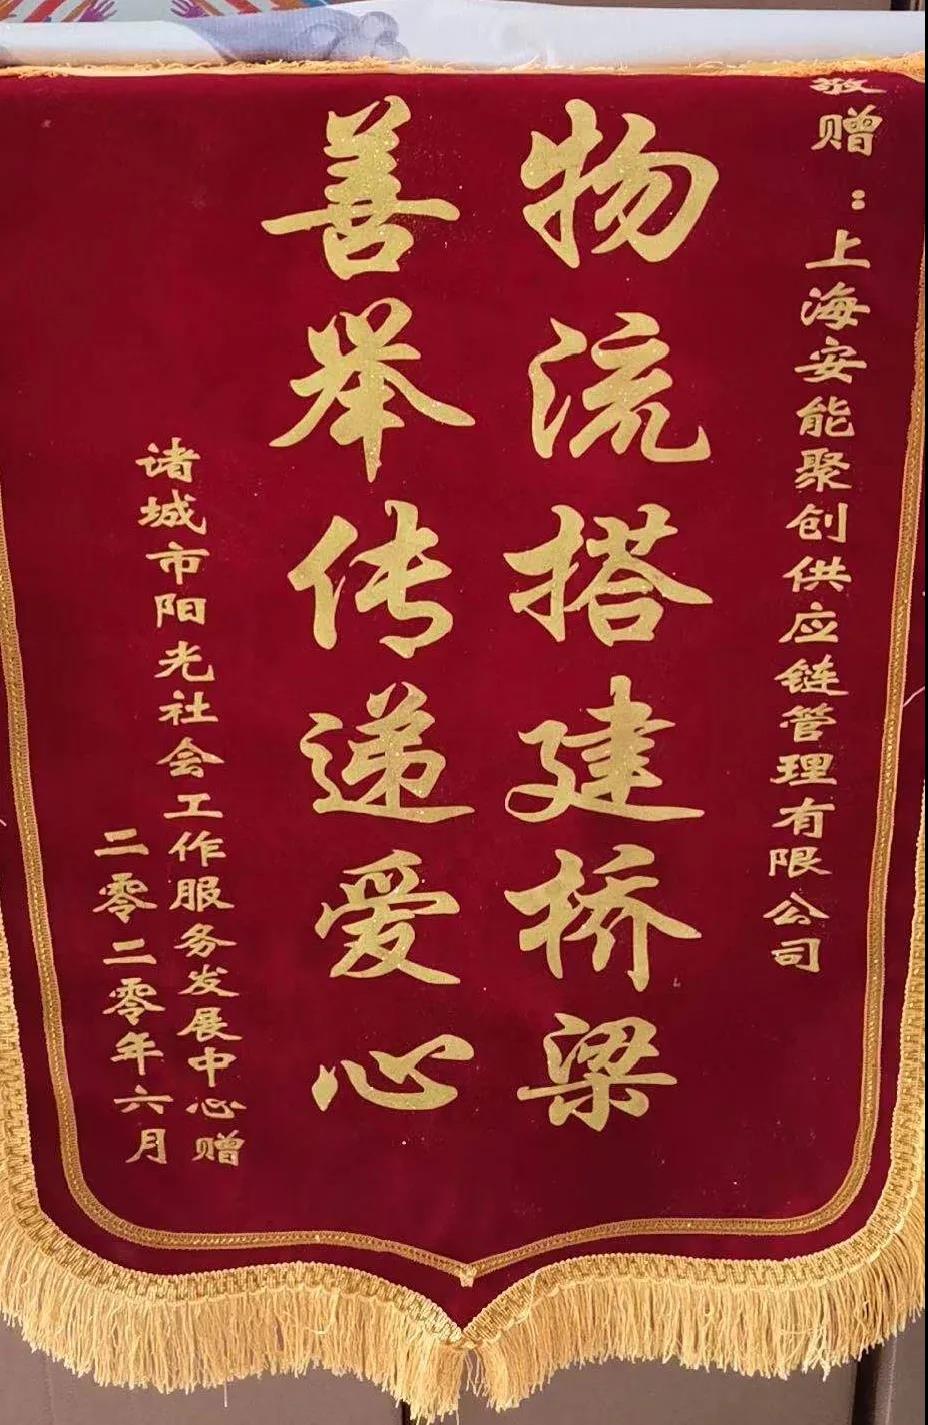 敬赠：上海安能聚创供应链管理有限公司
物流搭建桥梁
善举传递爱心
诸城市阳光社会工作服务发展中心赠
二零二零年六月